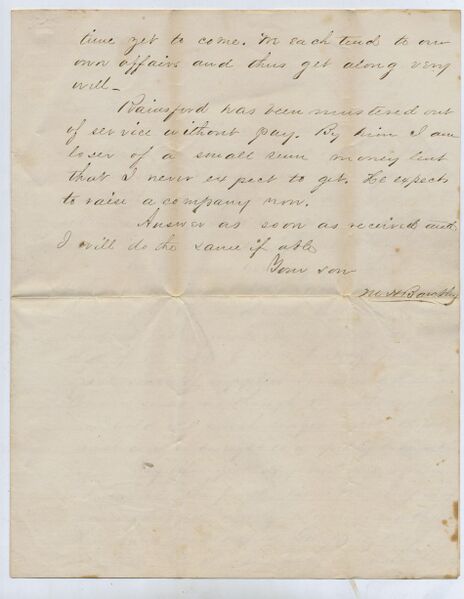 time yet to come. We each tend to our
own affairs and thus get along very
well—
Rainsford has been mustered out
of service without pay. By him I am
loser of a small sum money lent
that I never expect to get. He expects
to raise a company now.
Answer as soon as received and
I will do the same if able
Your son
M A